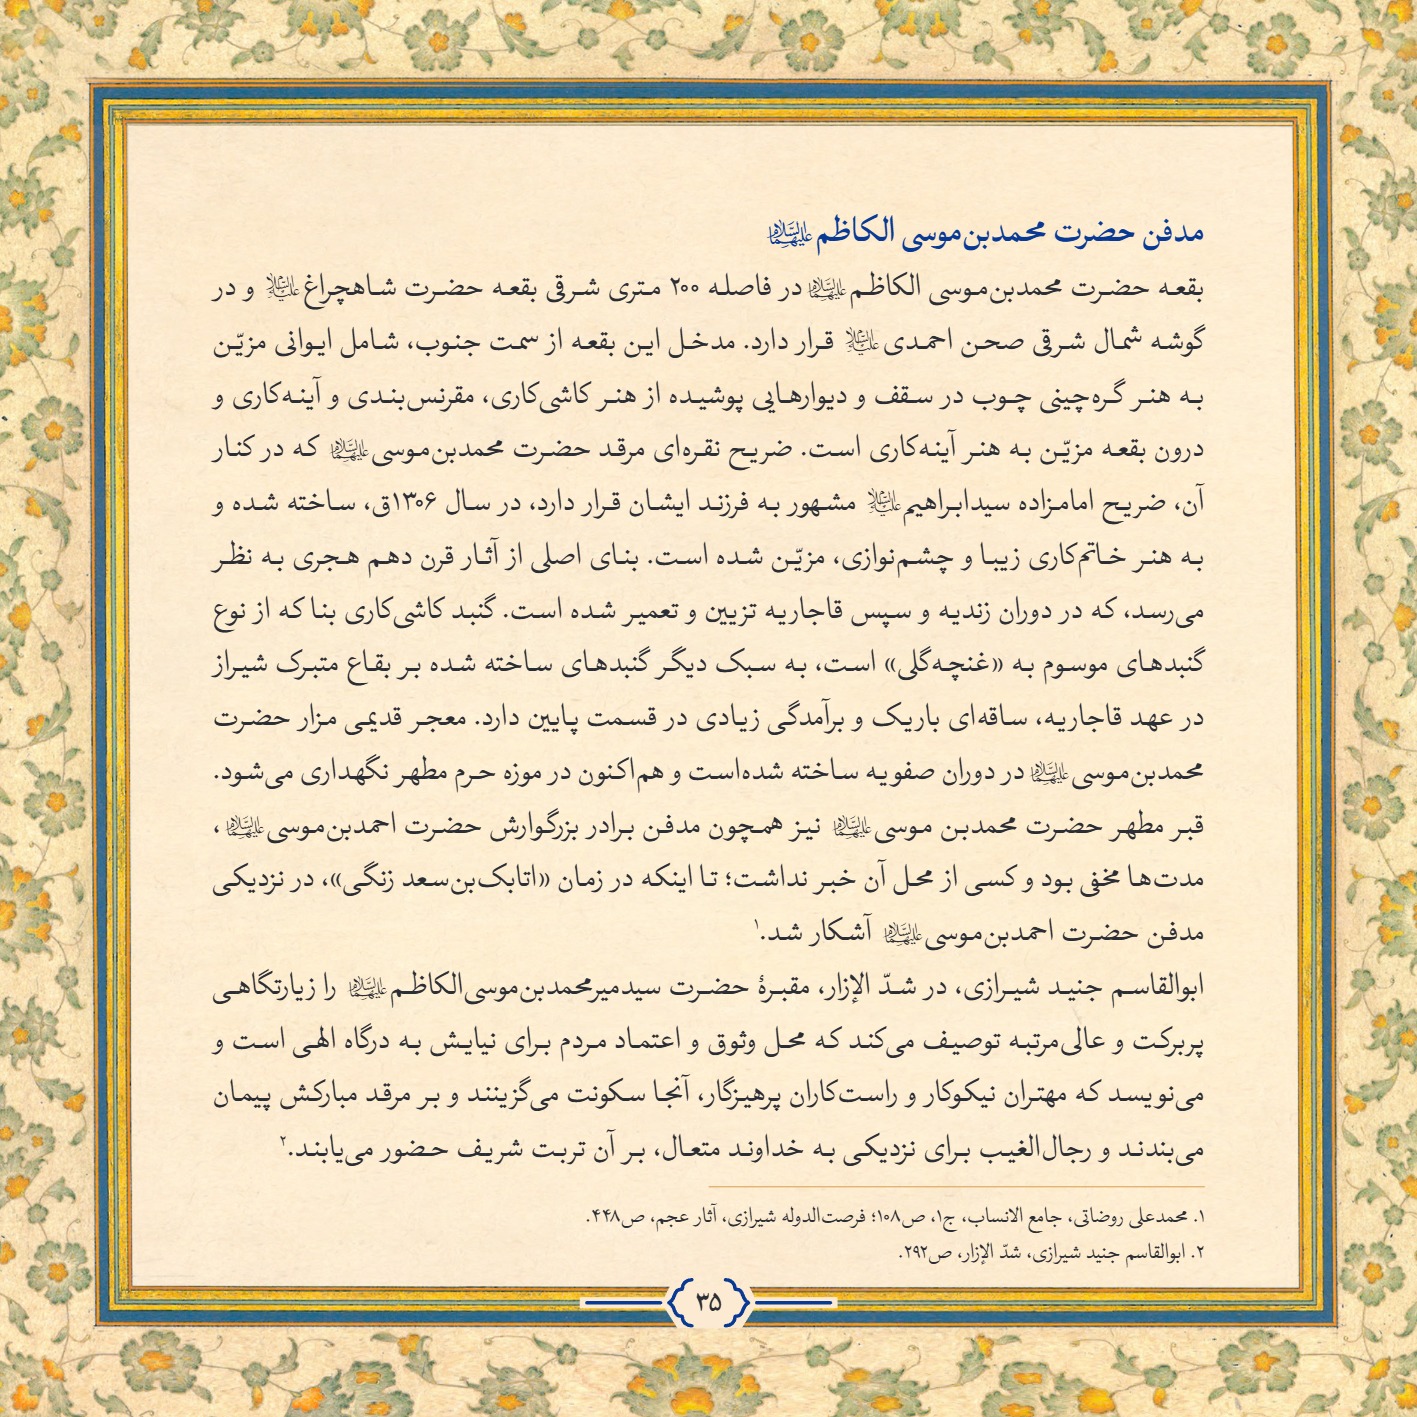 مدفن حضرت محمدبن‌موسی الکاظم علیهما‌السلام
بقعه حضرت محمدبن‌موسی الکاظم علیهما‌السلام در فاصله ۲۰۰ متری شرقی بقعه حضرت شاهچراغ علیه‌السلام و در
گوشه شمال شرقی صحن احمدی علیه‌السلام قرار دارد. مدخل این بقعه از سمت جنوب، شامل ایوانی مزیّن
به هنر گره‌چینی چوب در سقف و دیوارهایی پوشیده از هنر کاشی‌کاری، مقرنس‌بندی و آینه‌کاری و
درون بقعه مزیّن به هنر آینه‌کاری است. ضریح نقره‌ای مرقد حضرت محمدبن‌موسی علیهما‌السلام که در کنار
آن، ضریح امامزاده سیدابراهیم علیه‌السلام مشهور به فرزند ایشان قرار دارد، در سال ۱۳۰۶ق، ساخته شده و
به هنر خاتم‌کاری زیبا و چشم‌نوازی، مزیّن شده است. بنای اصلی از آثار قرن دهم هجری به نظر
می‌رسد، که در دوران زندیه و سپس قاجاریه تزیین و تعمیر شده است. گنبد کاشی‌کاری بنا که از نوع
گنبدهای موسوم به «غنچه‌گلی» است، به سبک دیگر گنبدهای ساخته شده بر بقاع متبرک شیراز
در عهد قاجاریه، ساقه‌ای باریک و برآمدگی زیادی در قسمت پایین دارد. معجر قدیمی مزار حضرت
محمدبن‌موسی علیهما‌السلام در دوران صفویه ساخته شده‌است و هم‌اکنون در موزه حرم مطهر نگهداری می‌شود.
قبر مطهر حضرت محمدبن موسی علیهما‌السلام نیز همچون مدفن برادر بزرگوارش حضرت احمدبن‌موسی علیهما‌السلام،
مدت‌ها مخفی بود و کسی از محل آن خبر نداشت؛ تا اینکه در زمان «اتابک‌بن‌سعد زنگی»، در نزدیکی
مدفن حضرت احمدبن‌موسی علیهما‌السلام آشکار شد.۱
ابوالقاسم جنید شیرازی، در شدّ الإزار، مقبرهٔ حضرت سیدمیرمحمدبن‌موسی‌الکاظم علیهما‌السلام را زیارتگاهی
پربرکت و عالی‌مرتبه توصیف می‌کند که محل وثوق و اعتماد مردم برای نیایش به درگاه الهی است و
می‌نویسد که مهتران نیکوکار و راست‌کاران پرهیزگار، آنجا سکونت می‌گزینند و بر مرقد مبارکش پیمان
می‌بندند و رجال‌الغیب برای نزدیکی به خداوند متعال، بر آن تربت شریف حضور می‌یابند.۲
۱. محمدعلی روضاتی، جامع الانساب، ج۱، ص۱۰۸؛ فرصت‌الدوله شیرازی، آثار عجم، ص۴۴۸.
۲. ابوالقاسم جنید شیرازی، شدّ الإزار، ص۲۹۲.
۳۵